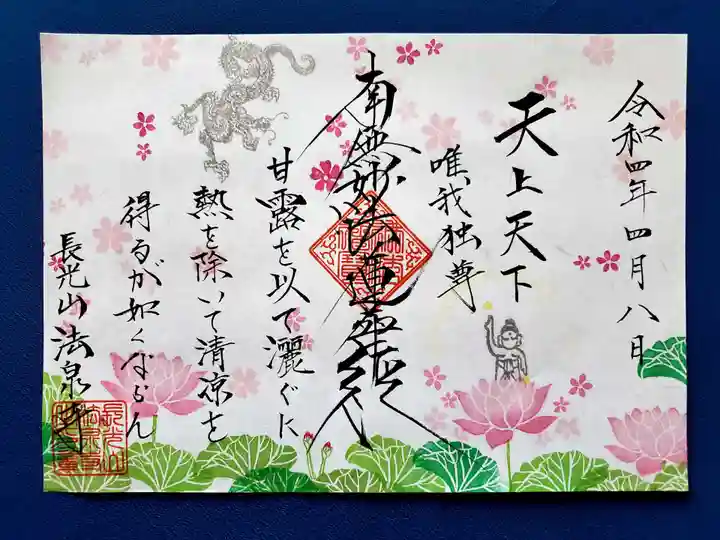 令和四年四月八日
天上天下
唯我独尊
南無妙法蓮華経
甘露を以て灑ぐに
熱を除いて清凉を
得るが如くならん
長光山法泉寺